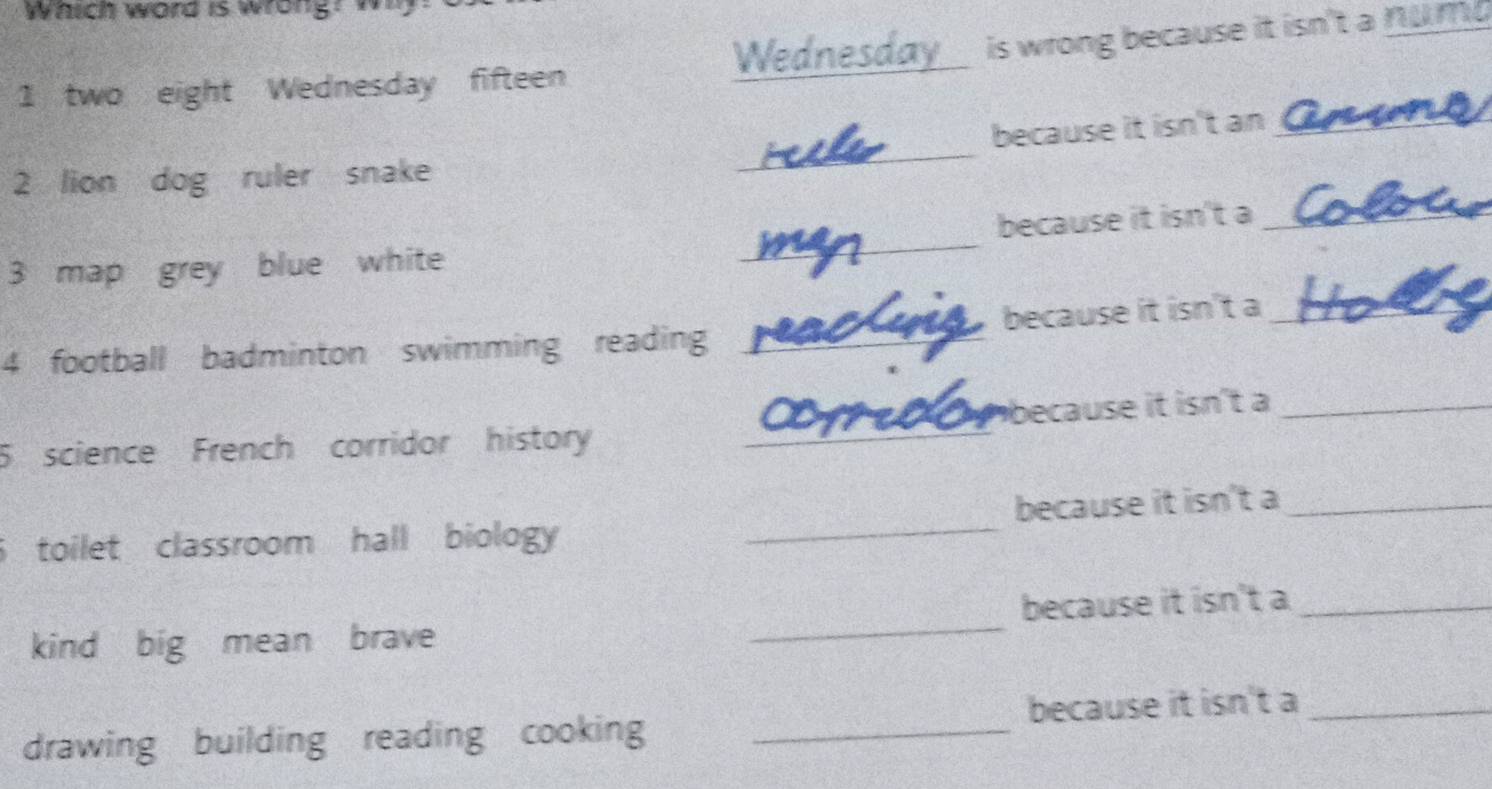 Which word is wrong? Why?
1 two eight Wednesday fifteen Wednesday is wrong because it isn't a numb
2 lion dog ruler snake ruler because it isn't an anima
3 map grey blue white map because it isn't a Colour
4 football badminton swimming reading reading because it isn't a
5 science French corridor history corridor because it isn't a
toilet classroom hall biology because it isn't a
kind big mean brave because it isn't a
drawing building reading cooking because it isn't a